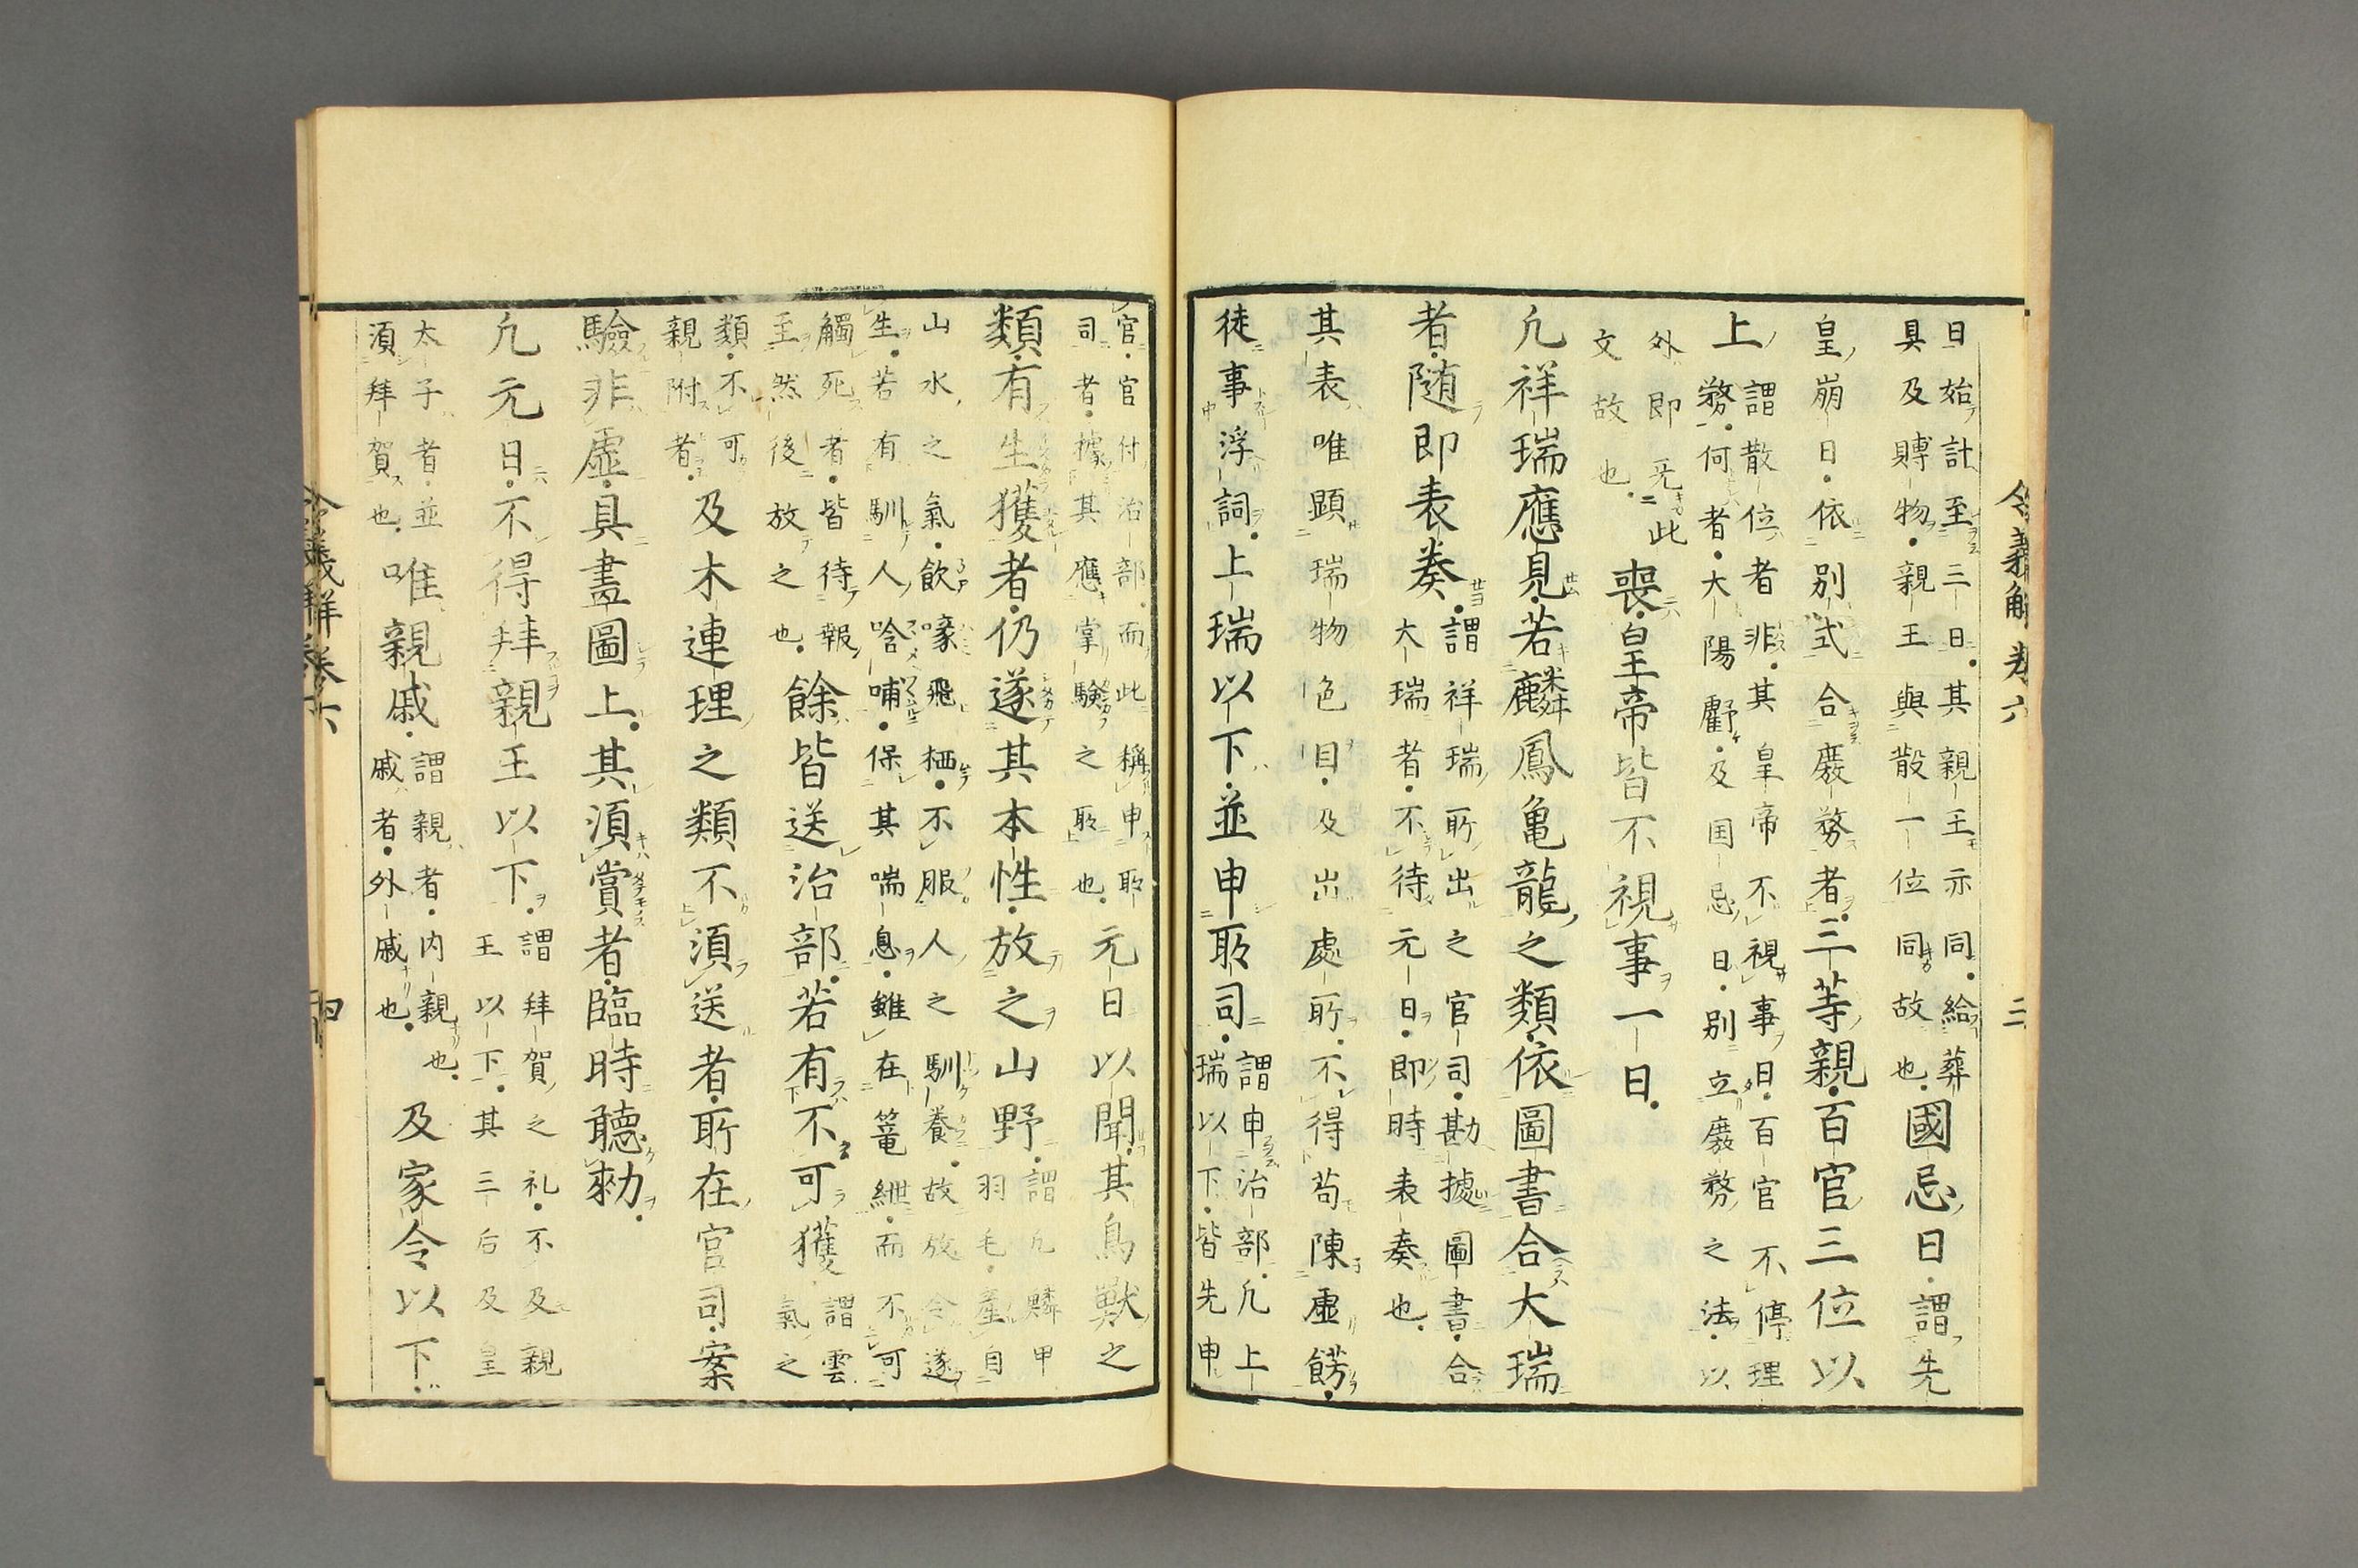 令義解卷六
三
日始計至三日其親王亦同給葬
具及賻物親王與散一位同故也國忌日謂先
皇崩日依別式合廢務者三等親百官三位以
上謂散位者非其皇帝不視事日百官不停理
務何者大陽虧及囯忌日別立廢務之法以
外即旡此
文故也喪皇帝皆不視事一日
凢祥瑞應見若麟鳳亀龍之類依圖書合大瑞
者随即表奏謂祥瑞所出之官司勘據圖書合
大瑞者不待元日即時表奏也
其表唯顕瑞物色目及出處所不得苟陳虚餝
徒事浮詞上瑞以下並申所司謂申治部凢上
瑞以下皆先申
官官付治部而此稱申所
司者據其應掌驗之所也元日以聞其鳥獸之
類有生獲者仍遂其本性放之山野謂凢鱗甲
羽毛産自
山水之氣飲喙飛栖不服人之馴養故放令遂
生若有馴人唅哺保其喘息雖在篭紲而不可
觸死者皆待報
至然後放之也餘皆送治部若有不可獲謂雲
氣之
類不可
親附者及木連理之類不湏送者所在官司案
驗非虚具畫圖上其湏賞者臨時聽勑
凢元日不得拜親王以下謂拜賀之礼不及親
王以下其三后及皇
太子者並
湏拜賀也唯親戚謂親者内親也
戚者外戚也及家令以下
令義解卷六
四